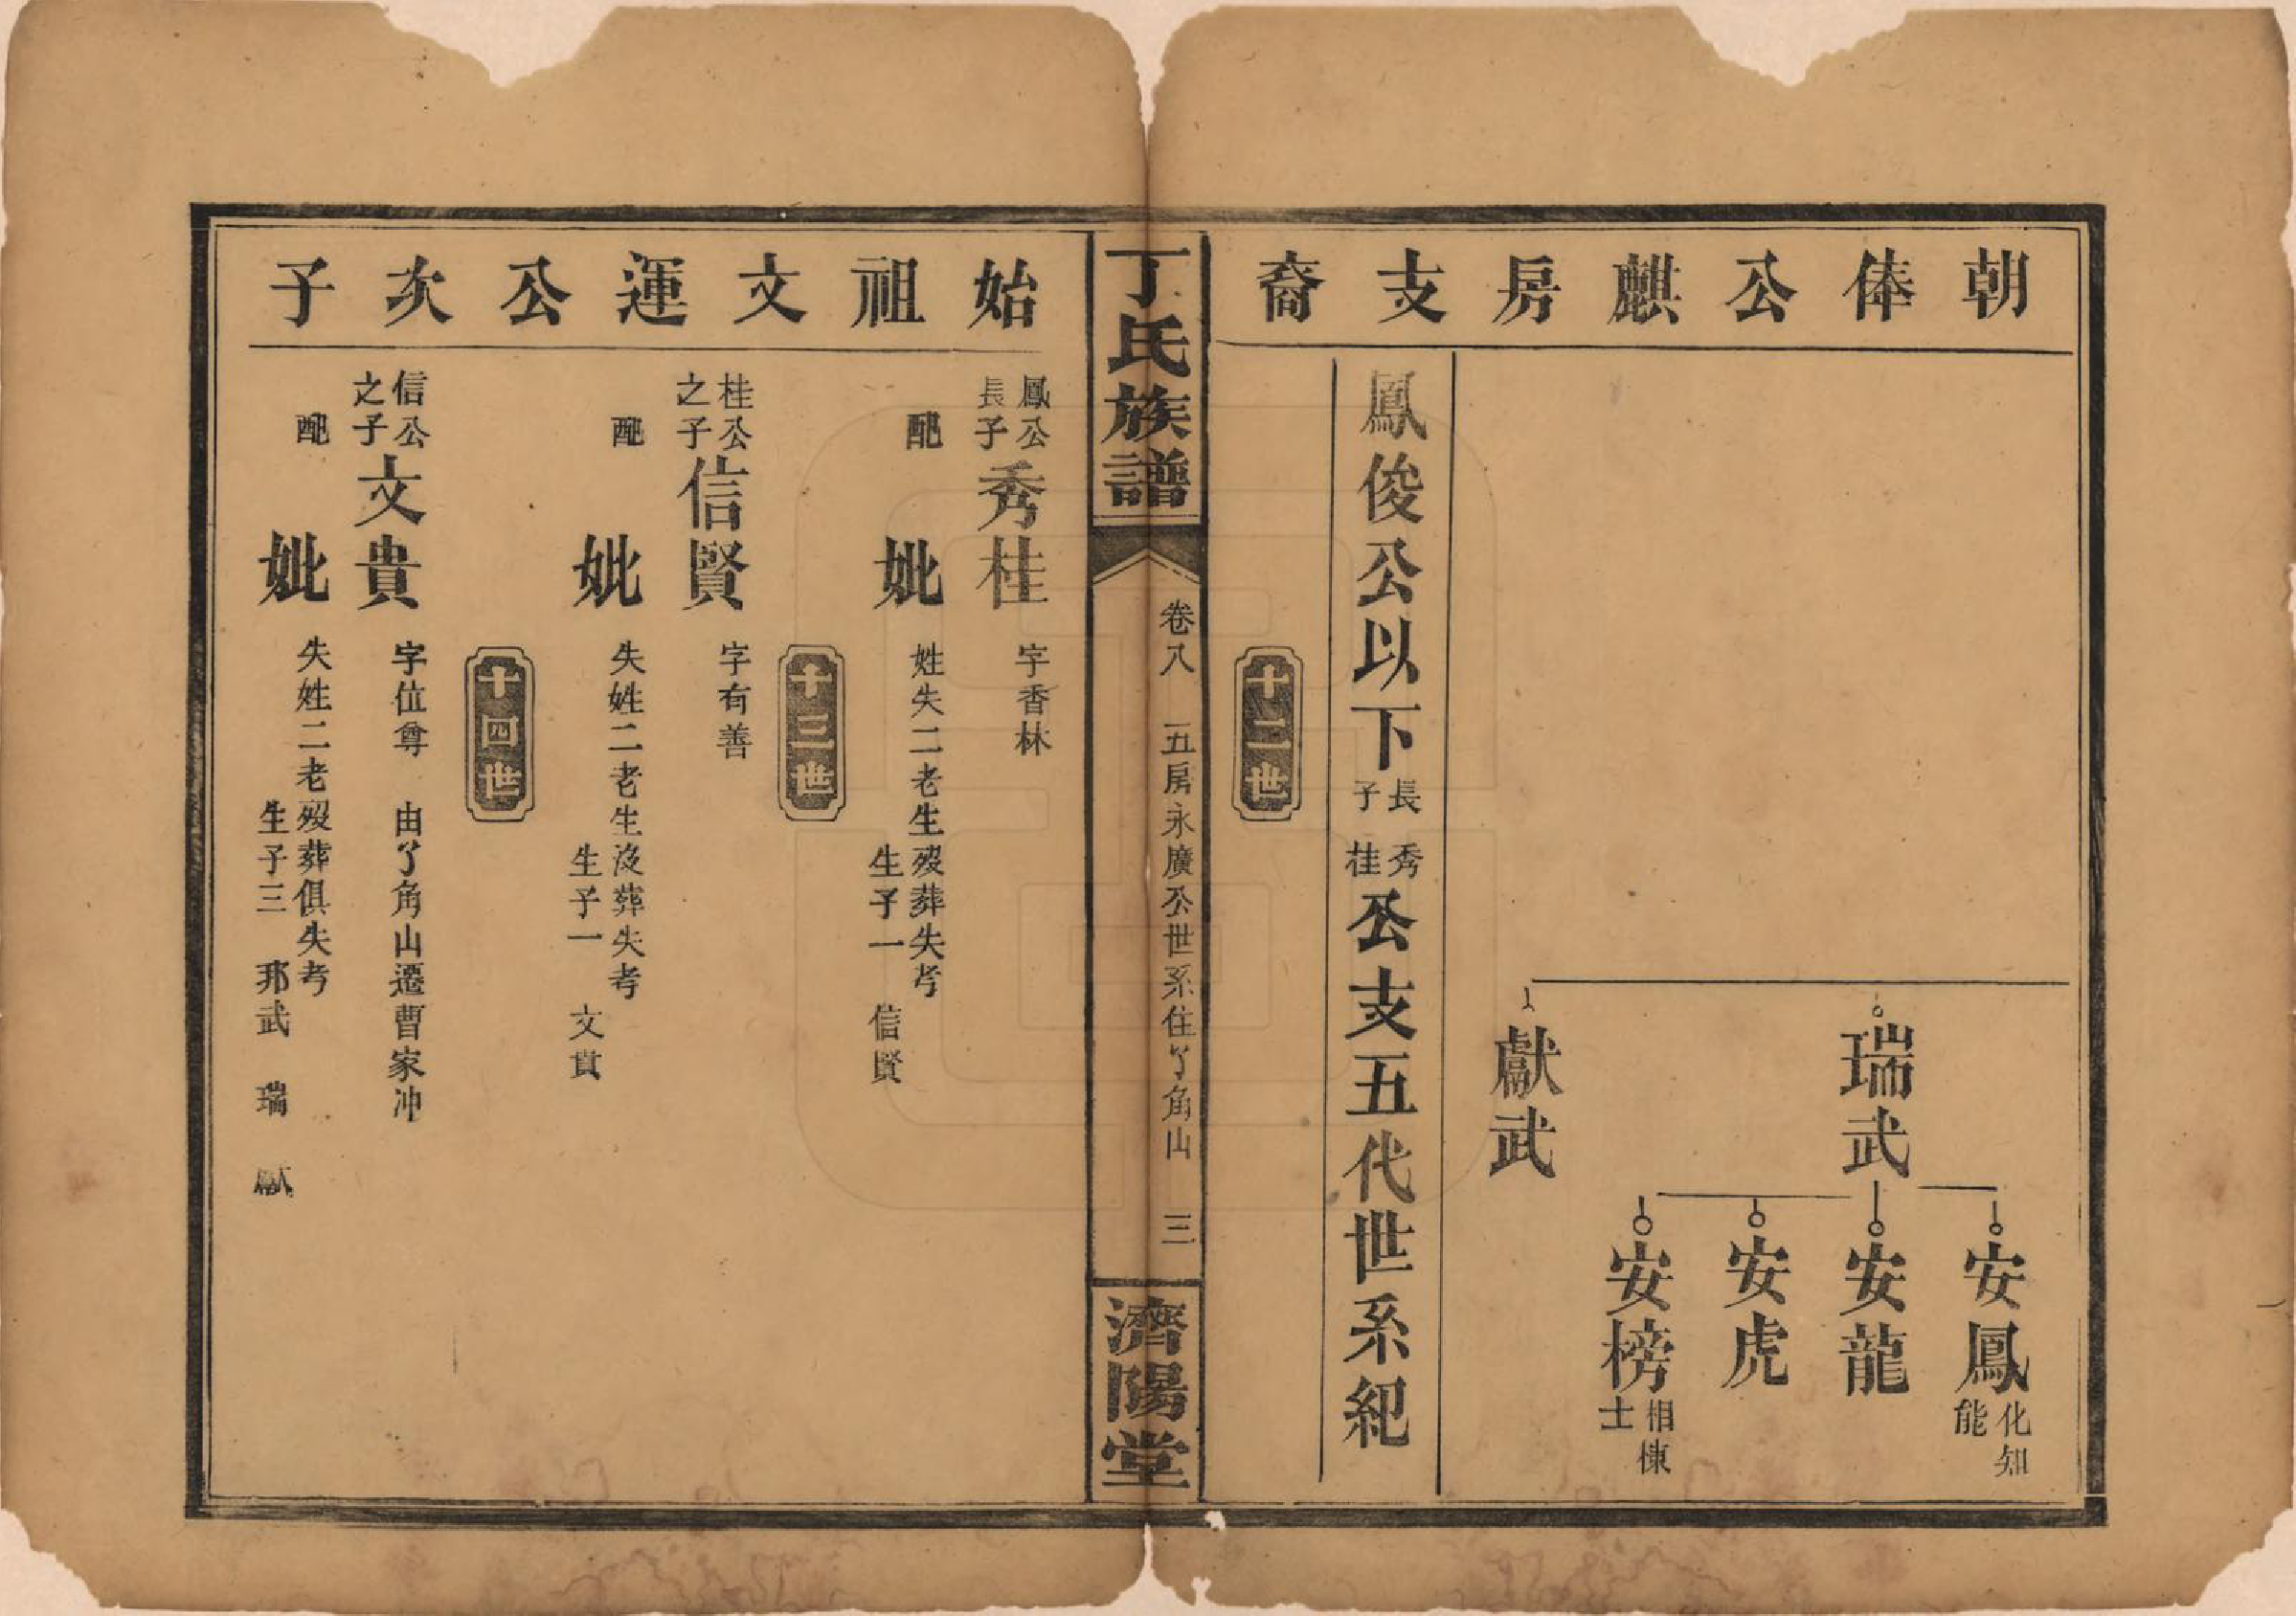 朝俸公麒房支裔
瑞武
獻武
安鳳 化知 能
安龍
安虎
安榜 相棟 士
鳳俊公以下長子秀桂公支五代世系紀
十二世
丁氏族譜
卷八 五房永廣公世系住了角山 三
濟陽堂
始祖文運公次子
鳳公長子秀桂 字香林
配妣 姓失二老生歿葬失考
生子一 信賢
十三世
桂公之子信賢 字有善
配妣 失姓二老生沒葬失考
生子一 文貴
十四世
信公之子文貴 字位尊 由了角山遷曹家冲
配妣 失姓二老歿葬俱失考
生子三 邦武 瑞 獻